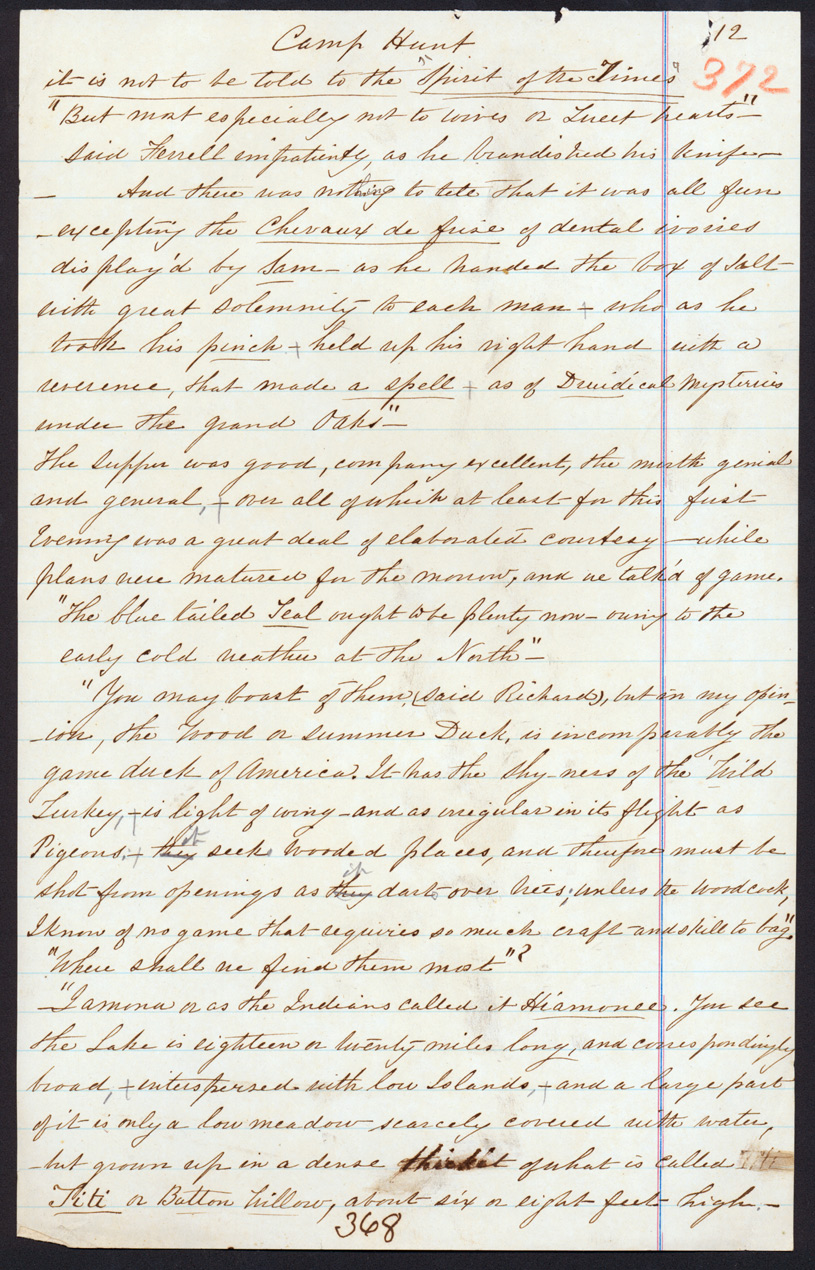 Camp Hunt
12
372
it is not to be told to the "Spirit of the Times"
"But most especially not to wives or Sweet hearts"—
said Ferrell impatiently, as he brandished his knife—
— And there was nothing to tell that it was all fun
–excepting the Chevaux de frise of dental ivories
display'd by Sam— as he handed the box of Salt
with great solemnity to each man + who as he
took his pinch + held up his right hand with a
reverence, that made a spell + as of Druidical Mysteries
under the grand Oaks"—
The supper was good, company excellent, the mirth genial
and general, + over all of which at least for this first
Evening was a great deal of elaborated courtesy — while
plans were matured for the morrow, and we talk'd of game.
"The blue tailed Teal ought to be plenty now— owing to the
early cold weather at the North"—
"You may boast of them, (said Richard), but in my opin-
-ion, the Wood or summer Duck, is incomparably the
game duck of America. It has the shy-ness of the Wild
Turkey, + is light of wing—and as irregular in its flight as
Pigeons. + they it seeks wooded places, and therefore must be
shot from openings as they it darts over trees; unless the woodcock,
I know of no game that requires so much craft and skill to bag".
"Where shall we find them most"?
—"Iamona or as the Indians called it Hiamonee. You see
the Lake is eighteen or twenty miles long, and correspondingly
broad, + interspersed with low Islands, + and a large part
of it is only a low meadow scarcely covered with water,
–but grown up in a dense thicket of what is called Titi
Titi or Button Willow, about six or eight feet high.—
368